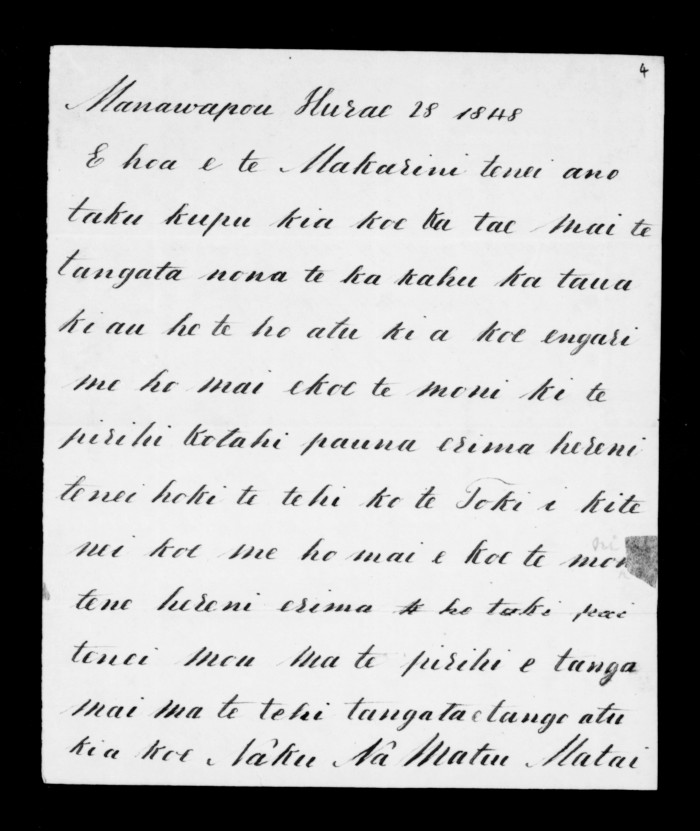 4
Manawapou Hurae 28 1848
E hoa e te Makarini tenei ano
taku kupu kia koe Ka tae mai te
tangata nona te ka kahu ka taua
ki au ho te ho atu ki a koe engari
me ho mai ekoe te moni ki te
pirihi kotahi pauna erima hereni
tenei hoki te tehi ko te Toki i kite
nei koe me ho mai e koe te mon
tene hereni erima he toki pai
tenei mou ma te pirihi e tanga
mai ma te tehi tangata etango atu
kia koe Nâku Nâ Matiu Matai